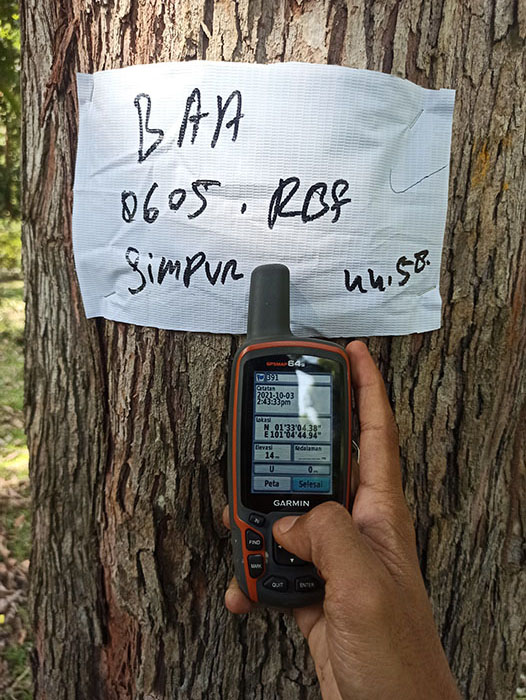 BAA
0605 . RBF
SimPUR 44.58.
GPSMAP 64s
391
Catatan
2021-10-03
2:43:33pm
Lokasi
N 01°33'04.38"
E 101°04'44.94"
Elevasi Kedalaman
14 m
U 0 m
Peta Selesai
GARMIN
IN
FIND
MARK
QUIT ENTER